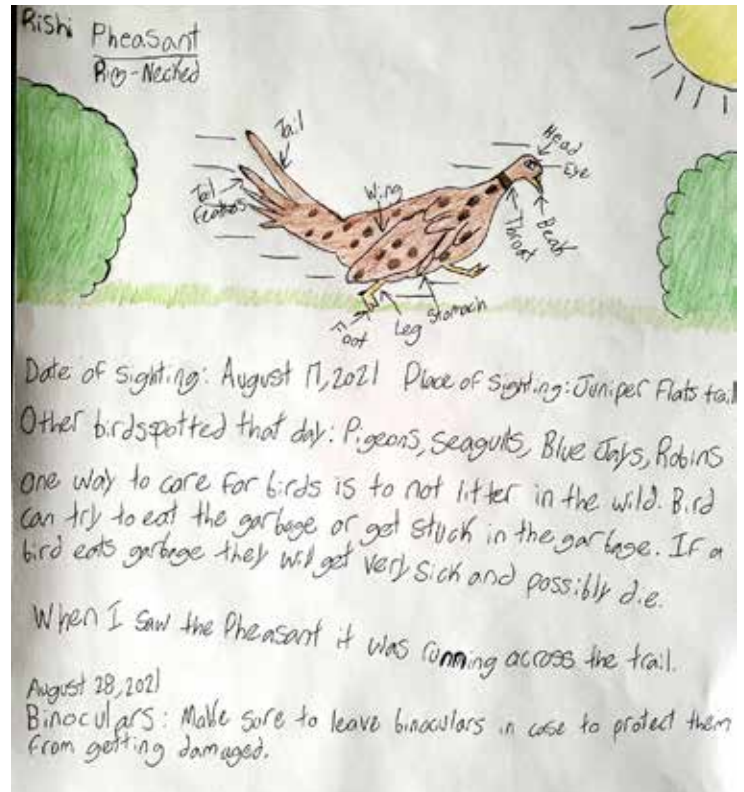 Rishi
Pheasant
Ring-Necked
Tail
Tail
Feathers
Wing
Head
Eye
Beak
Throat
Stomach
Leg
Foot
Date of sighting: August 17, 2021 Place of sighting: Juniper Flats trail
Other birds spotted that day: Pigeons, Seagulls, Blue Jays, Robins
one way to care for birds is to not litter in the wild. Bird
can try to eat the garbage or get stuck in the garbage. If a
bird eats garbage they will get very sick and possibly die.
When I saw the Pheasant it was running across the trail.
August 28, 2021
Binoculars: Make sure to leave binoculars in case to protect them
from getting damaged.